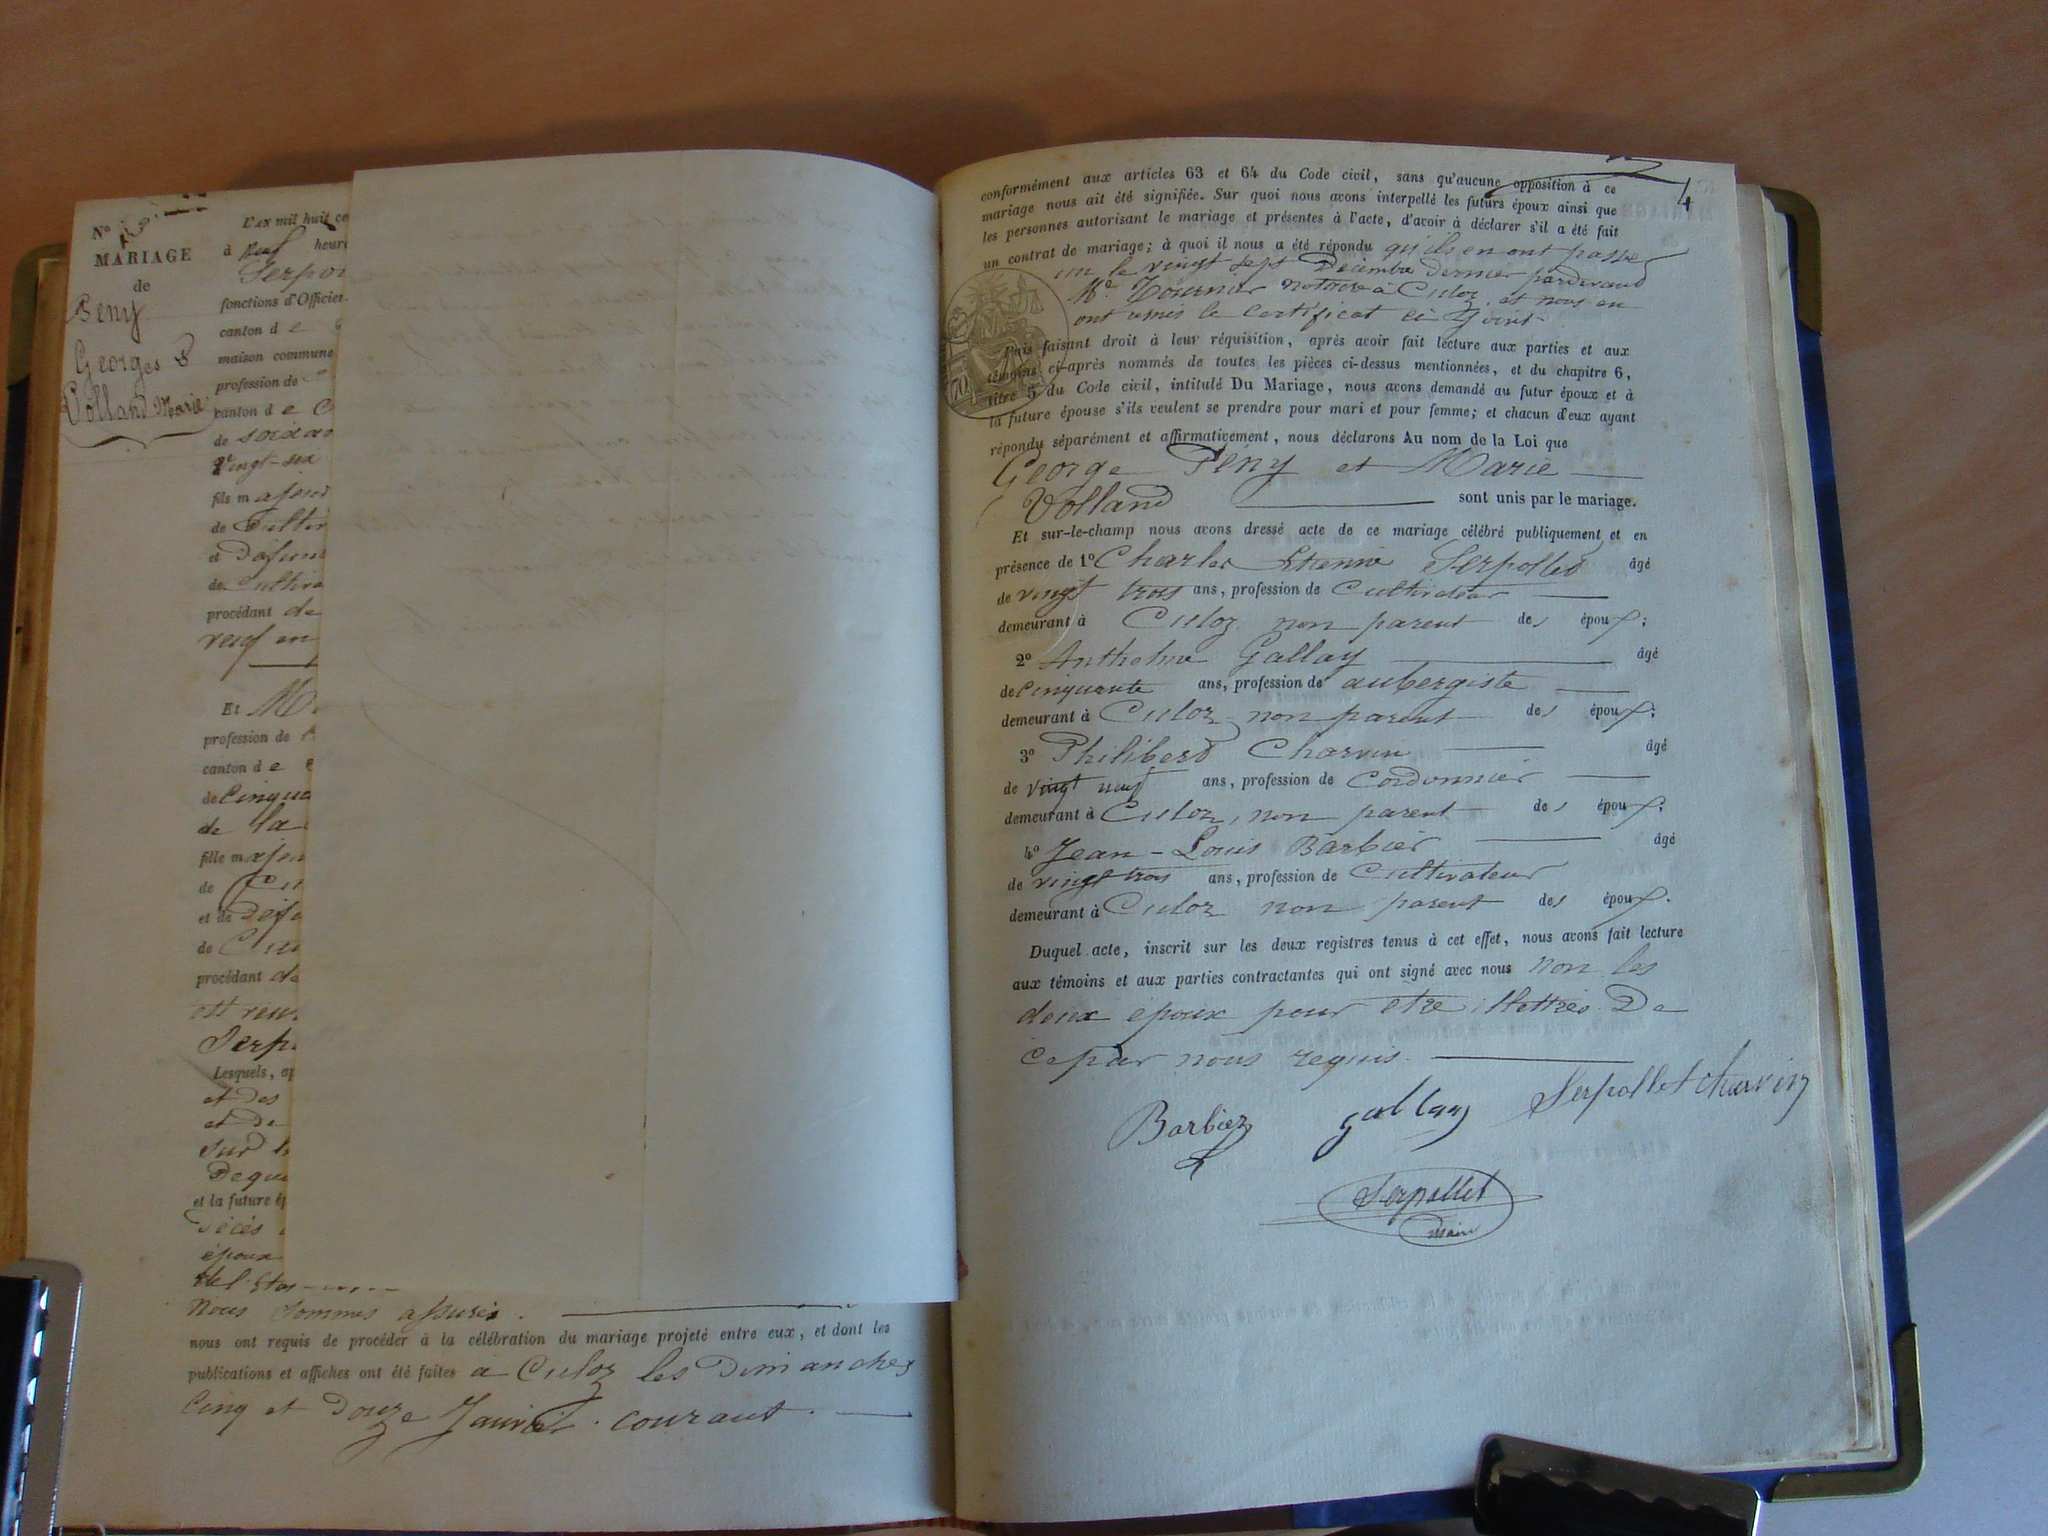 N°
MARIAGE
de
Peny
Georges &
Volland Marie
L'AN mil huit ce
à neuf heure
Serpo
fonctions d'Officier
canton d e
maison commune
profession de
canton d e C
de
Vingt-six
fils majeur
de Cultiv
et Défun
de Cultiva
procédant de
veuf en
Et M
profession de
canton d e
de Cinqua
de la
fille majeu
de Cu
et de Défu
de Cu
procédant de
est veuv
Serp
Lesquels, ap
et des
et de
Sur l
Dequ
et la future ép
décès
époux
Nous sommes assurés.
nous ont requis de procéder à la célébration du mariage projeté entre eux, et dont les
publications et affiches ont été faites à Culoz les Dimanches
Cinq et Douze Janvier courant.
4
conformément aux articles 63 et 64 du Code civil, sans qu'aucune opposition à ce
mariage nous ait été signifiée. Sur quoi nous avons interpellé les futurs époux ainsi que
les personnes autorisant le mariage et présentes à l'acte, d'avoir à déclarer s'il a été fait
un contrat de mariage; à quoi il nous a été répondu qu'ils en ont passé
un le vingt sept Décembre dernier pardevant
Me Tournier notaire à Culoz, et nous en
ont remis le certificat ci joint
Puis faisant droit à leur réquisition, après avoir fait lecture aux parties et aux
témoins ci-après nommés de toutes les pièces ci-dessus mentionnées, et du chapitre 6,
titre 5 du Code civil, intitulé Du Mariage, nous avons demandé au futur époux et à
la future épouse s'ils veulent se prendre pour mari et pour femme; et chacun d'eux ayant
répondu séparément et affirmativement, nous déclarons Au nom de la Loi que
George Peny et Marie
Volland sont unis par le mariage.
Et sur-le-champ nous avons dressé acte de ce mariage célébré publiquement et en
présence de 1° Charles Etienne Serpollet âgé
de vingt trois ans, profession de Cultivateur
demeurant à Culoz non parent des époux;
2° Anthelme Gallay âgé
de Cinquante ans, profession de aubergiste
demeurant à Culoz non parent des époux;
3° Philibert Charvin âgé
de vingt neuf ans, profession de Cordonnier
demeurant à Culoz, non parent des époux;
4° Jean-Louis Barbier âgé
de vingt trois ans, profession de Cultivateur
demeurant à Culoz non parent des époux.
Duquel acte, inscrit sur les deux registres tenus à cet effet, nous avons fait lecture
aux témoins et aux parties contractantes qui ont signé avec nous non les
deux époux pour etre illettrés De
ce par nous requis.
Barbier Gallay Serpollet Charvin
Serpollet
maire